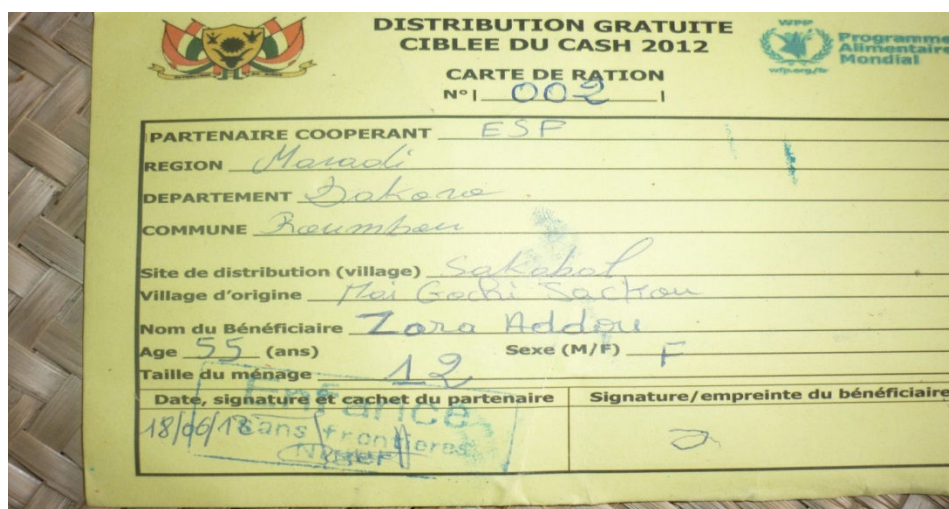 DISTRIBUTION GRATUITE
CIBLEE DU CASH 2012
WFP
Programme
Alimentaire
Mondial
wfp.org/fr
CARTE DE RATION
N° | 002 |
PARTENAIRE COOPERANT ESF
REGION Maradi
DEPARTEMENT Dakoro
COMMUNE Roumbou
Site de distribution (village) Sakabal
Village d'origine Mai Gochi Sackou
Nom du Bénéficiaire Zara Addou
Age 55 (ans) Sexe (M/F) F
Taille du ménage 12
Date, signature et cachet du partenaire Signature/empreinte du bénéficiaire
Enfance
18/06/12 sans frontieres